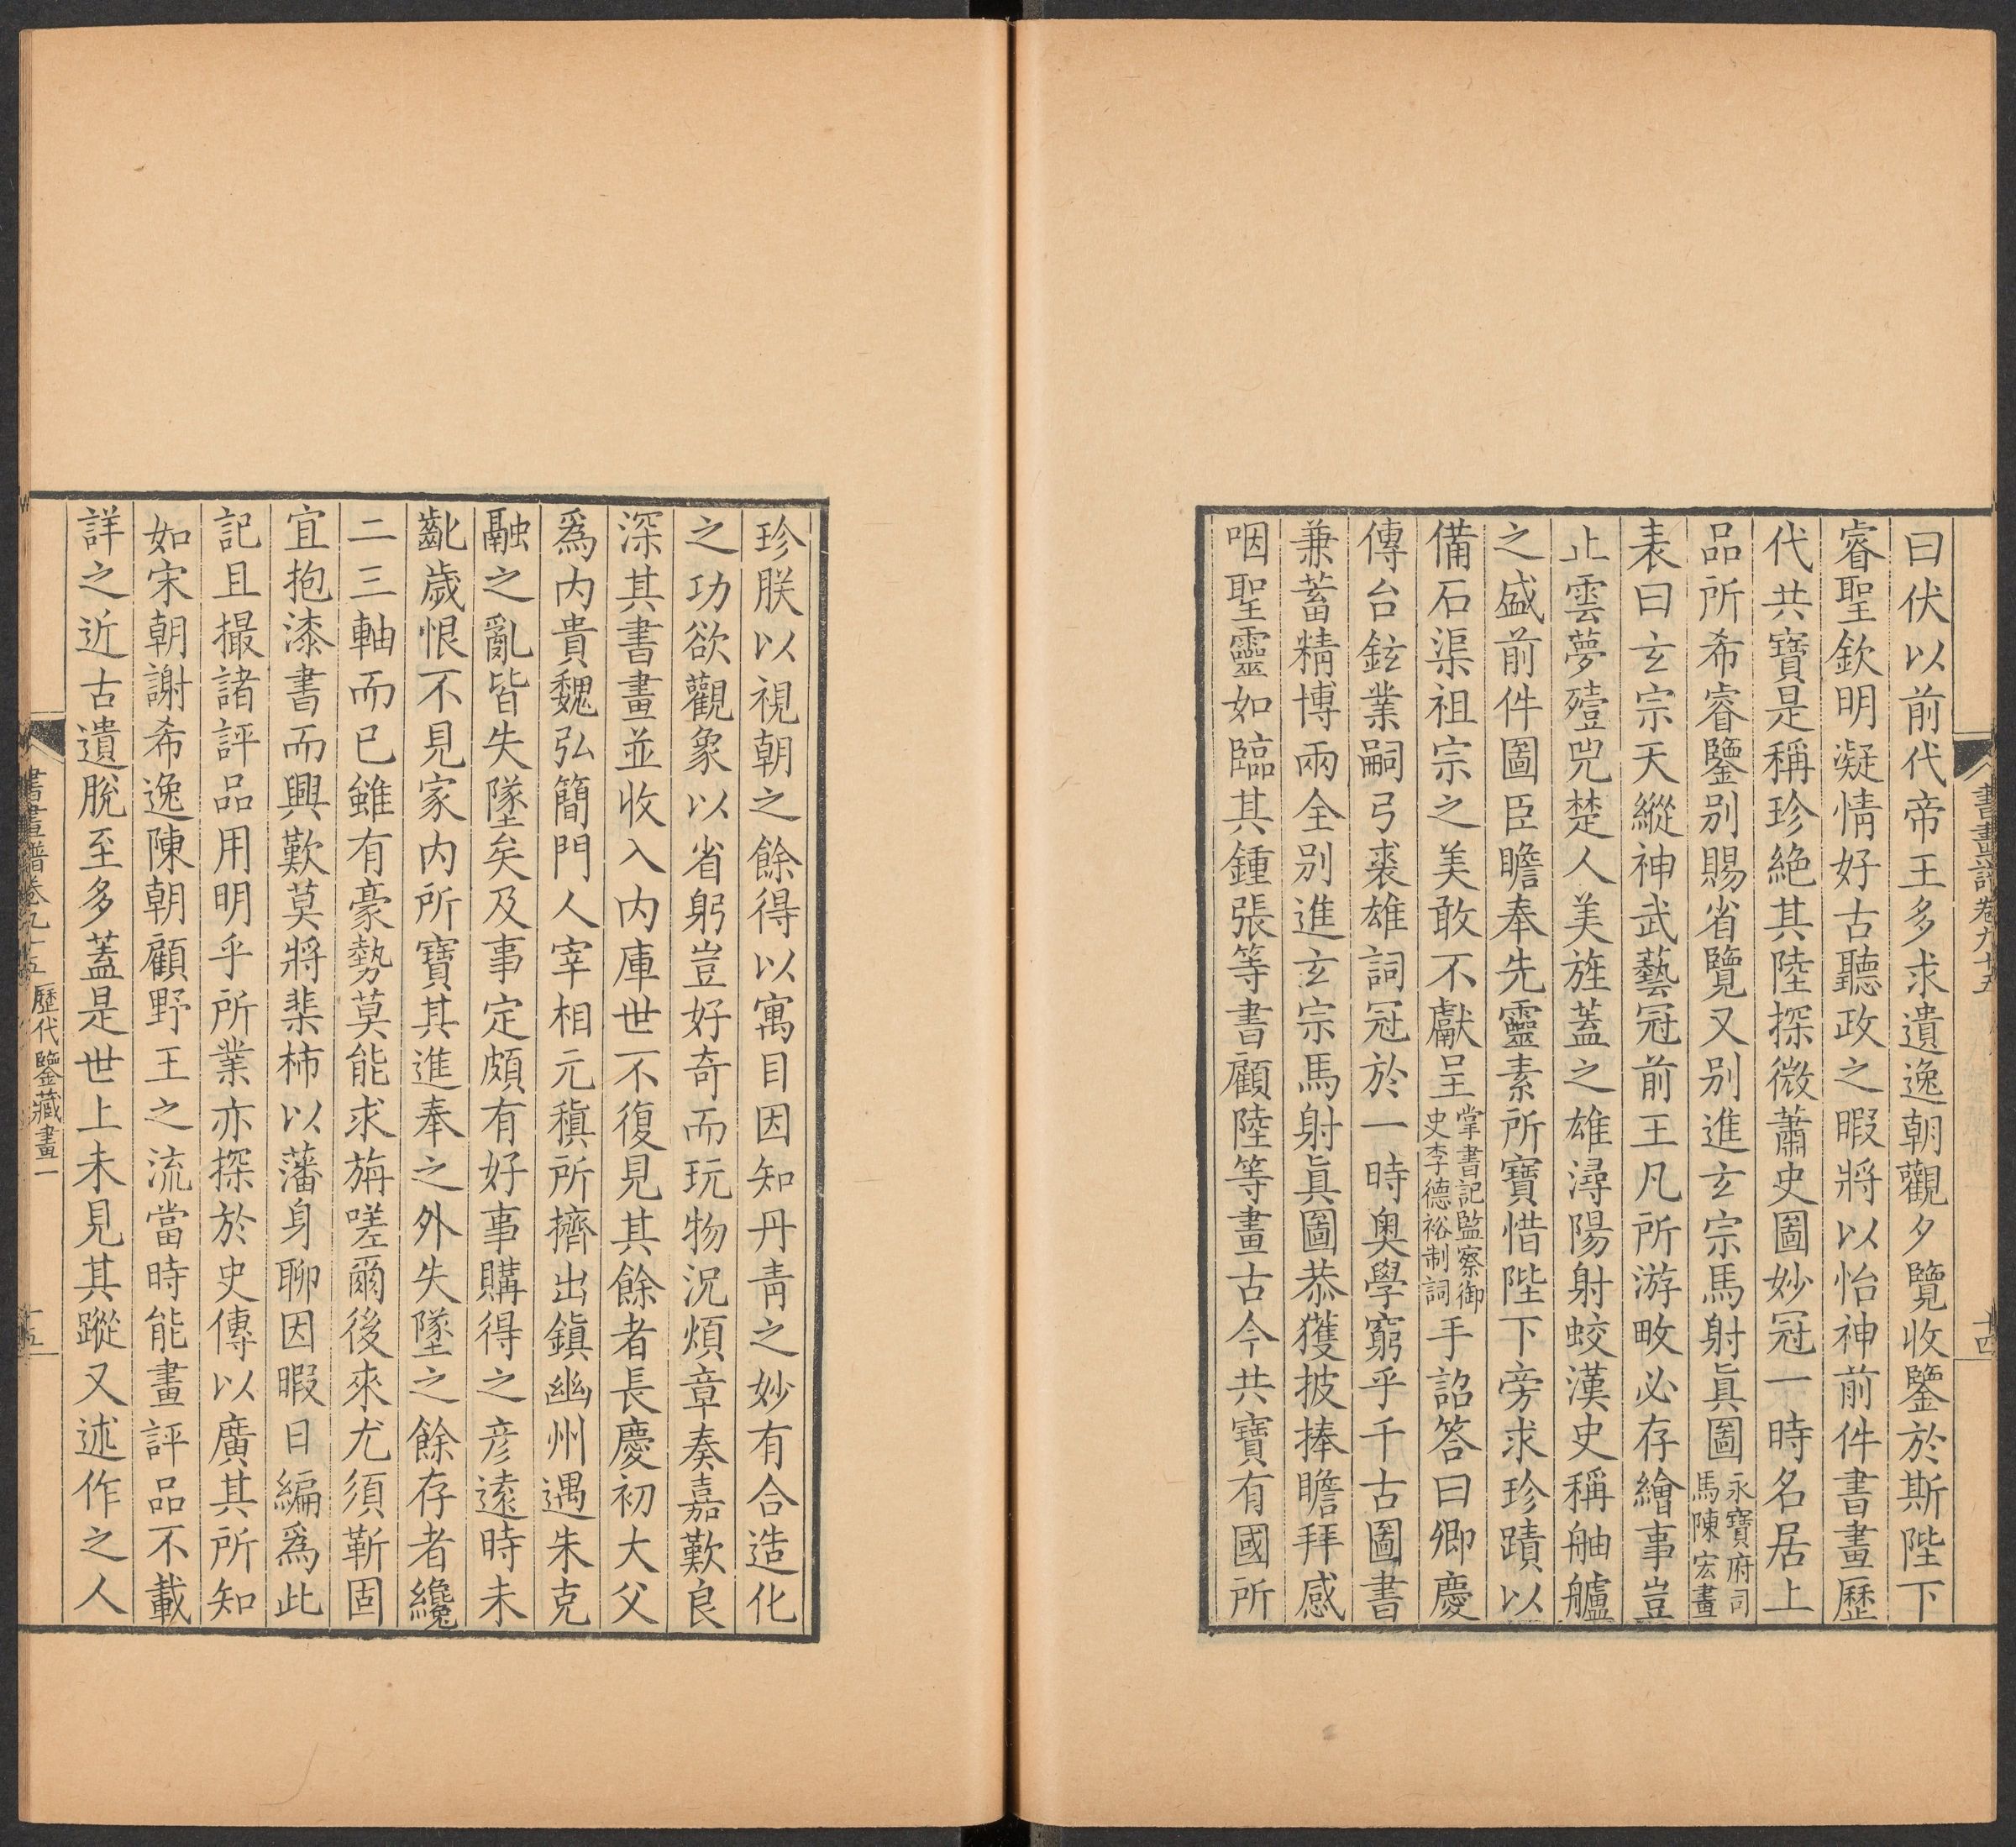 書畫譜卷九十五
十四
曰伏以前代帝王多求遺逸朝觀夕覽收鑒於斯陛下
睿聖欽明凝情好古聽政之暇將以怡神前件書畫歷
代共寶是稱珍絕其陸探微蕭史圖妙冠一時名居上
品所希睿鑒別賜省覽又別進玄宗馬射眞圖永寶府司馬陳宏畫
表曰玄宗天縱神武藝冠前王凡所游畋必存繪事豈
止雲夢殪兕楚人美旌蓋之雄潯陽射蛟漢史稱舳艫
之盛前件圖臣瞻奉先靈素所寶惜陛下旁求珍蹟以
備石渠祖宗之美敢不獻呈掌書記監察御史李德裕制詞手詔答曰卿慶
傳台鉉業嗣弓裘雄詞冠於一時奥學窮乎千古圖書
兼蓄精博兩全別進玄宗馬射眞圖恭獲披捧瞻拜感
咽聖靈如臨其鍾張等書顧陸等畫古今共寶有國所
珍朕以視朝之餘得以寓目因知丹青之妙有合造化
之功欲觀象以省躬豈好奇而玩物況煩章奏嘉歎良
深其書畫並收入内庫世不復見其餘者長慶初大父
爲内貴魏弘簡門人宰相元稹所擠出鎮幽州遇朱克
融之亂皆失墜矣及事定頗有好事購得之彦遠時未
齔歲恨不見家内所寶其進奉之外失墜之餘存者纔
二三軸而已雖有豪勢莫能求旃嗟爾後來尤須靳固
宜抱漆書而興歎莫將棐柹以藩身聊因暇日編爲此
記且撮諸評品用明乎所業亦探於史傳以廣其所知
如宋朝謝希逸陳朝顧野王之流當時能畫評品不載
詳之近古遺脫至多蓋是世上未見其蹤又述作之人
書畫譜卷九十五 歷代鑒藏畫一
十五